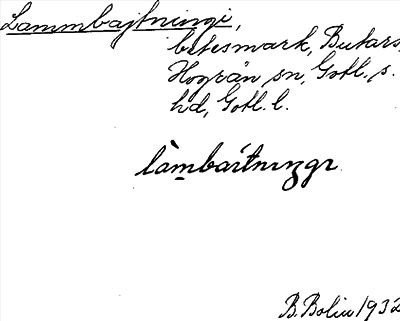 Lammbajtningi,
betesmark, Butars,
Hogrän sn, Gotl. s.
hd, Gotl. l.
làmbaítnıŋgɩ
B. Bolin 1932